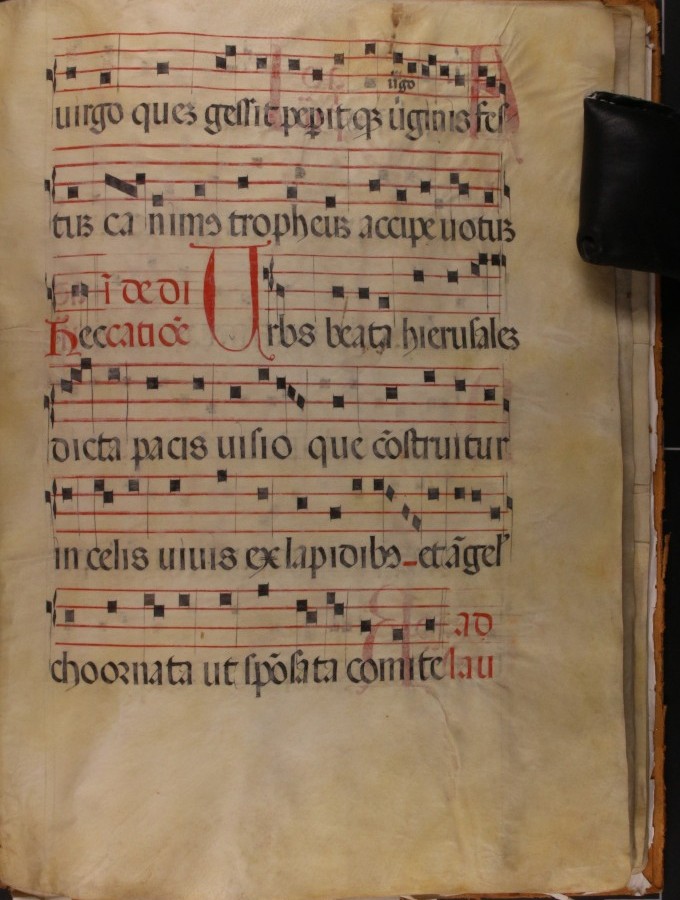 uirgo
uirgo queʒ gessit pepit qʒ ūginis fes
tuʒ ca nimꝰ tropheuʒ accipe uotuʒ
ī dedi
heccatiōe Urbs beata hierusaleʒ
dicta pacis uisio que cōstruitur
in celis uiuis ex lapidibꝰ et āgel
ad
choornata ut spōsata comite lau